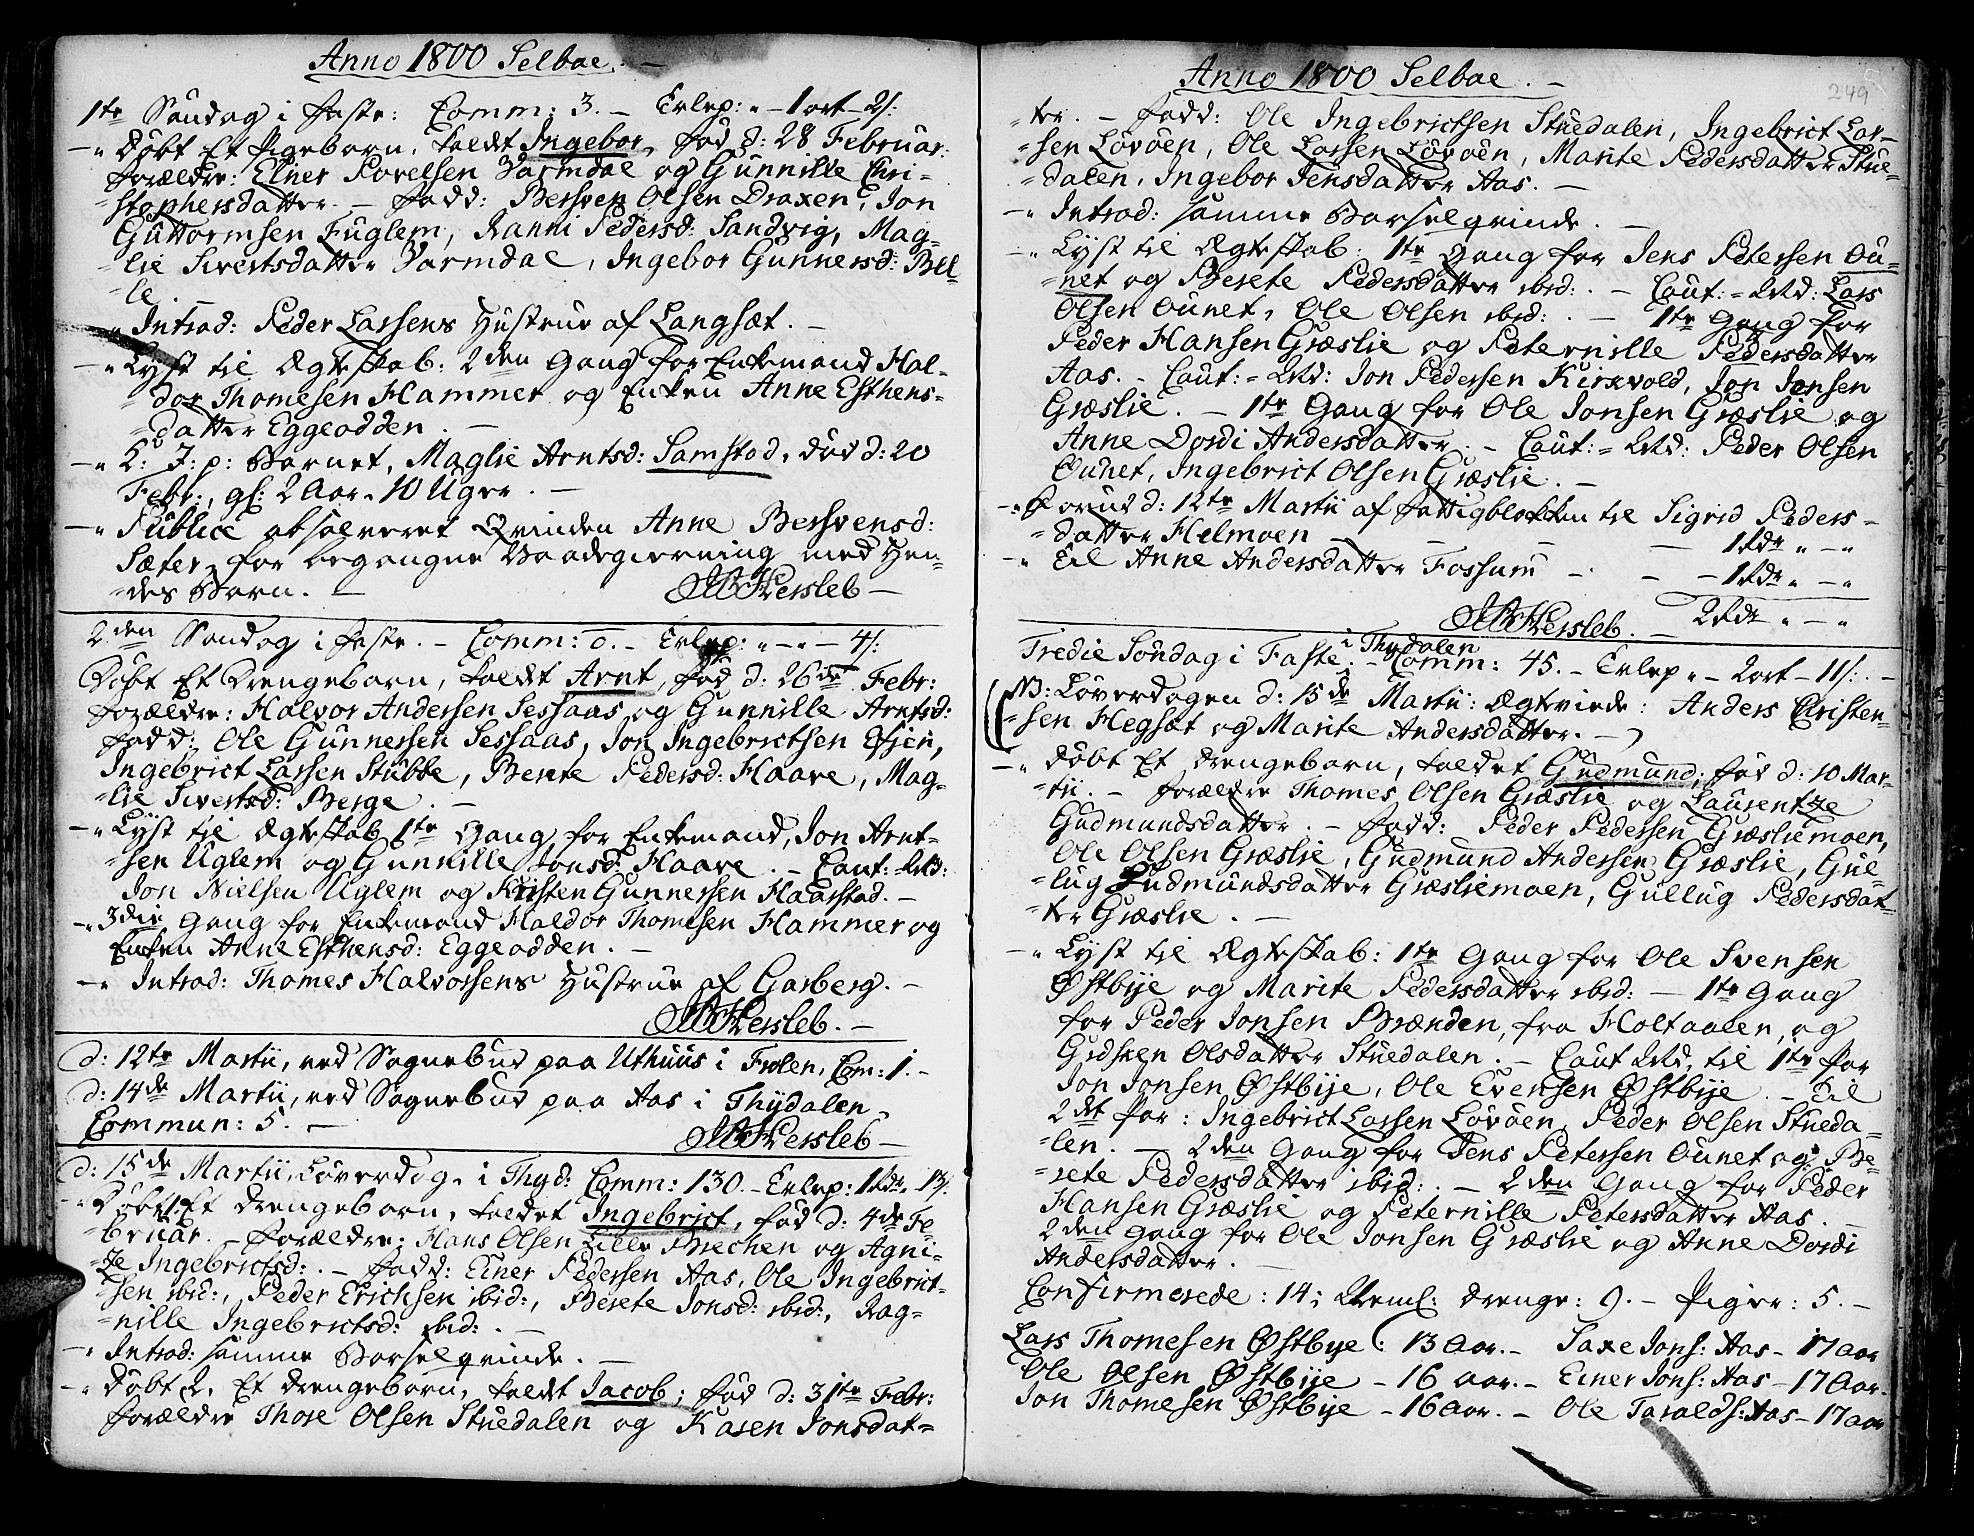 Anno 1800 Selboe. –
1te Søndag i Faste: Comm: 3. – Erlep: „ – 1 ort – 2/:
–„ Døbt Et Pigebarn, kaldet Ingebor, fød d: 28 Februar:
forældre: Elner Povelsen Varmdal og Gunnille Chri-
-stophersdatter. – Fadd: Bersven Olsen Draxen, Jon
Guttormsen Fuglem, Ranni Pedersd: Sandvig, Mag-
-lie Sivertsdatter Varmdal, Ingebor Gunnersd: Bell
-le.
–„ Introd: Peder Larsens Hustrue af Langsæt. –
–„ Lyst til Ægteskab: 2den Gang for Enkemand Hal-
-dor Thomesen Hammer og Enken Anne Esthens-
-datter Eggeodden. –
–„ L: J: p: Barnet, Maglie Arntsd: Samstad, død d: 20
Febr:, gl: 2 Aar. 10 Uger. –
–„ Publice absolveret Qvinden Anne Bersvensd:
Sæter, for begangne Vaadegierning med Hen-
-des Barn. – JB Hersleb –
2den Søndag i Faste. – Comm: 0. – Erlep: „ – „ – 4/:
Døbt Et Drengebarn, kaldet Arnt, fød d: 26de Febr:
forældre: Halvor Andersen Sessaas og Gunnille Arntsd:
Fadd: Ole Gunnersen Sessaas, Jon Ingebrictsen Evjen,
Ingebrict Larsen Stubbe, Berete Pedersd: Haare, Mag-
-lie Sivertsd: Berge. –
–„ Lyst til Ægteskab 1te Gang, for Enkemand, Jon Arnt-
-sen Uglem og Gunnille Jonsd: Haave. – Caut: Lvd:
Jon Nielsen Uglem og Kristen Gunnersen Haarstad. –
–„ 3die Gang for Enkemand Haldor Thomesen Hammer og
Enken Anne Esthensd: Eggeodden. –
–„ Introd: Thomes Halvorsens Hustrue af Garberg. –
JB Hersleb. –
d: 12te Martii, ved Sognebud paa Uthuus i Frolen, Com: 1. –
d: 14de Martii, ved Sognebud paa Aas i Thydalen.
Commun: 5. – JB Hersleb –
d: 15de Martii, Løverdag, i Thyd: Comm: 130. – Erlep: 1 Rdr. 13/:
–„ Døbt: Et Drengebarn, kaldet Ingebrict, fød d: 4de Fe-
-bruar. – forældre: Hans Olsen Lille Brechen og Agni-
-te Ingebrictsd: – Fadd: Einer Pedersen Aas, Ole Ingebrict-
-sen ibid:, Peder Erichsen ibid:, Berete Jonsd: ibid:, Rag-
-nille Ingebrictsd: ibid:. –
–„ Introd: samme Barselqvinde. –
–„ Døbt 2. Et Drengebarn, kaldet Jacob; fød d: 31te Febr:
forældre Thore Olsen Stuedalen og Karen Jonsdat-
Anno 1800 Selboe. –
249
-ter. – Fadd: Ole Ingebrictsen Stuedalen, Ingebrict Lar-
-sen Løvøen, Ole Larsen Løvøen, Marite Pedersdatter Stue-
-dalen, Ingebor Jensdatter Aas. –
–„ Introd: samme Barselqvinde. –
–„ Lyst til Ægteskab: 1te Gang for Jens Petersen Ou-
-net og Berete Pedersdatter ibid:. – Caut: Lvd: Lars
Olsen Ounet, Ole Olsen ibid:. – 1te Gang for
Peder Hansen Græslie og Peternille Pedersdatter
Aas. – Caut: Lvd: Jon Pedersen Kirkvold, Jon Jonsen
Græslie. – 1te Gang for Ole Jonsen Græslie og
Anne Dordi Andersdatter. – Caut: Lvd: Peder Olsen
Ounet, Ingebrict Olsen Græslie. –
–„ d: 12te Martii af Fattigblokken til Sigrid Peders-
-datter Helmoen – – – – 1 Rdr „ – „
–„ Til Anne Andersdatter Fossum – – – 1 Rdr „ – „
JB Hersleb. – 2 Rdr „ – „
Tredie Søndag i Faste. i Thydalen – Comm: 45. – Erlep „ – 2 ort – 11/:. –
(NB: Løverdagen d: 15de Martii: Ægteviede: Anders Cristen-
-sen Hegsæt og Marite Andersdatter. –)
–„ Døbt Et Drengebarn, kaldet Gudmund; fød d: 10 Mar-
-tii. – forældre Thomes Olsen Græslie og Laurentze
Gudmundsdatter. – Fadd: Peder Pedersen Græsliemoen,
Ole Olsen Græslie, Gudmund Andersen Græslie, Gul-
-lug Gudmundsdatter Græsliemoen, Gullug Pedersdat-
-ter Græslie. –
–„ Lyst til Ægteskab: 1te Gang for Ole Svensen
Østbye og Marite Pedersdatter ibid: – 1te Gang
for Peder Jonsen Brænden, fra Holtaalen, og
Gidsken Olsdatter Stuedalen. – Caut Lvd, til 1te Par
Jon Jonsen Østbye, Ole Evensen Østbye. – Til
2det Par: Ingebrict Larsen Løvøen, Peder Olsen Stueda-
-len. – 2den Gang for Jens Petersen Ounet og Be-
-rete Pedersdatter ibid:. – 2den Gang for Peder
Hansen Græslie og Peternille Petersdatter Aas. –
2den Gang for Ole Jonsen Græslie og Anne Dordi
Andersdatter. –
Confirmerede: 14; Neml: Drenge: 9. – Piger: 5. –
Lars Thomesen Østbye: 13 Aar. – Saxe Jons: Aas – 17 aar
Ole Olsen Østbye – 16 aar. – Einer Jons: Aas – 17 Aar.
Jon Thomesen Østbye – 16 aar. – Ole Taralds: Aas – 17 aar